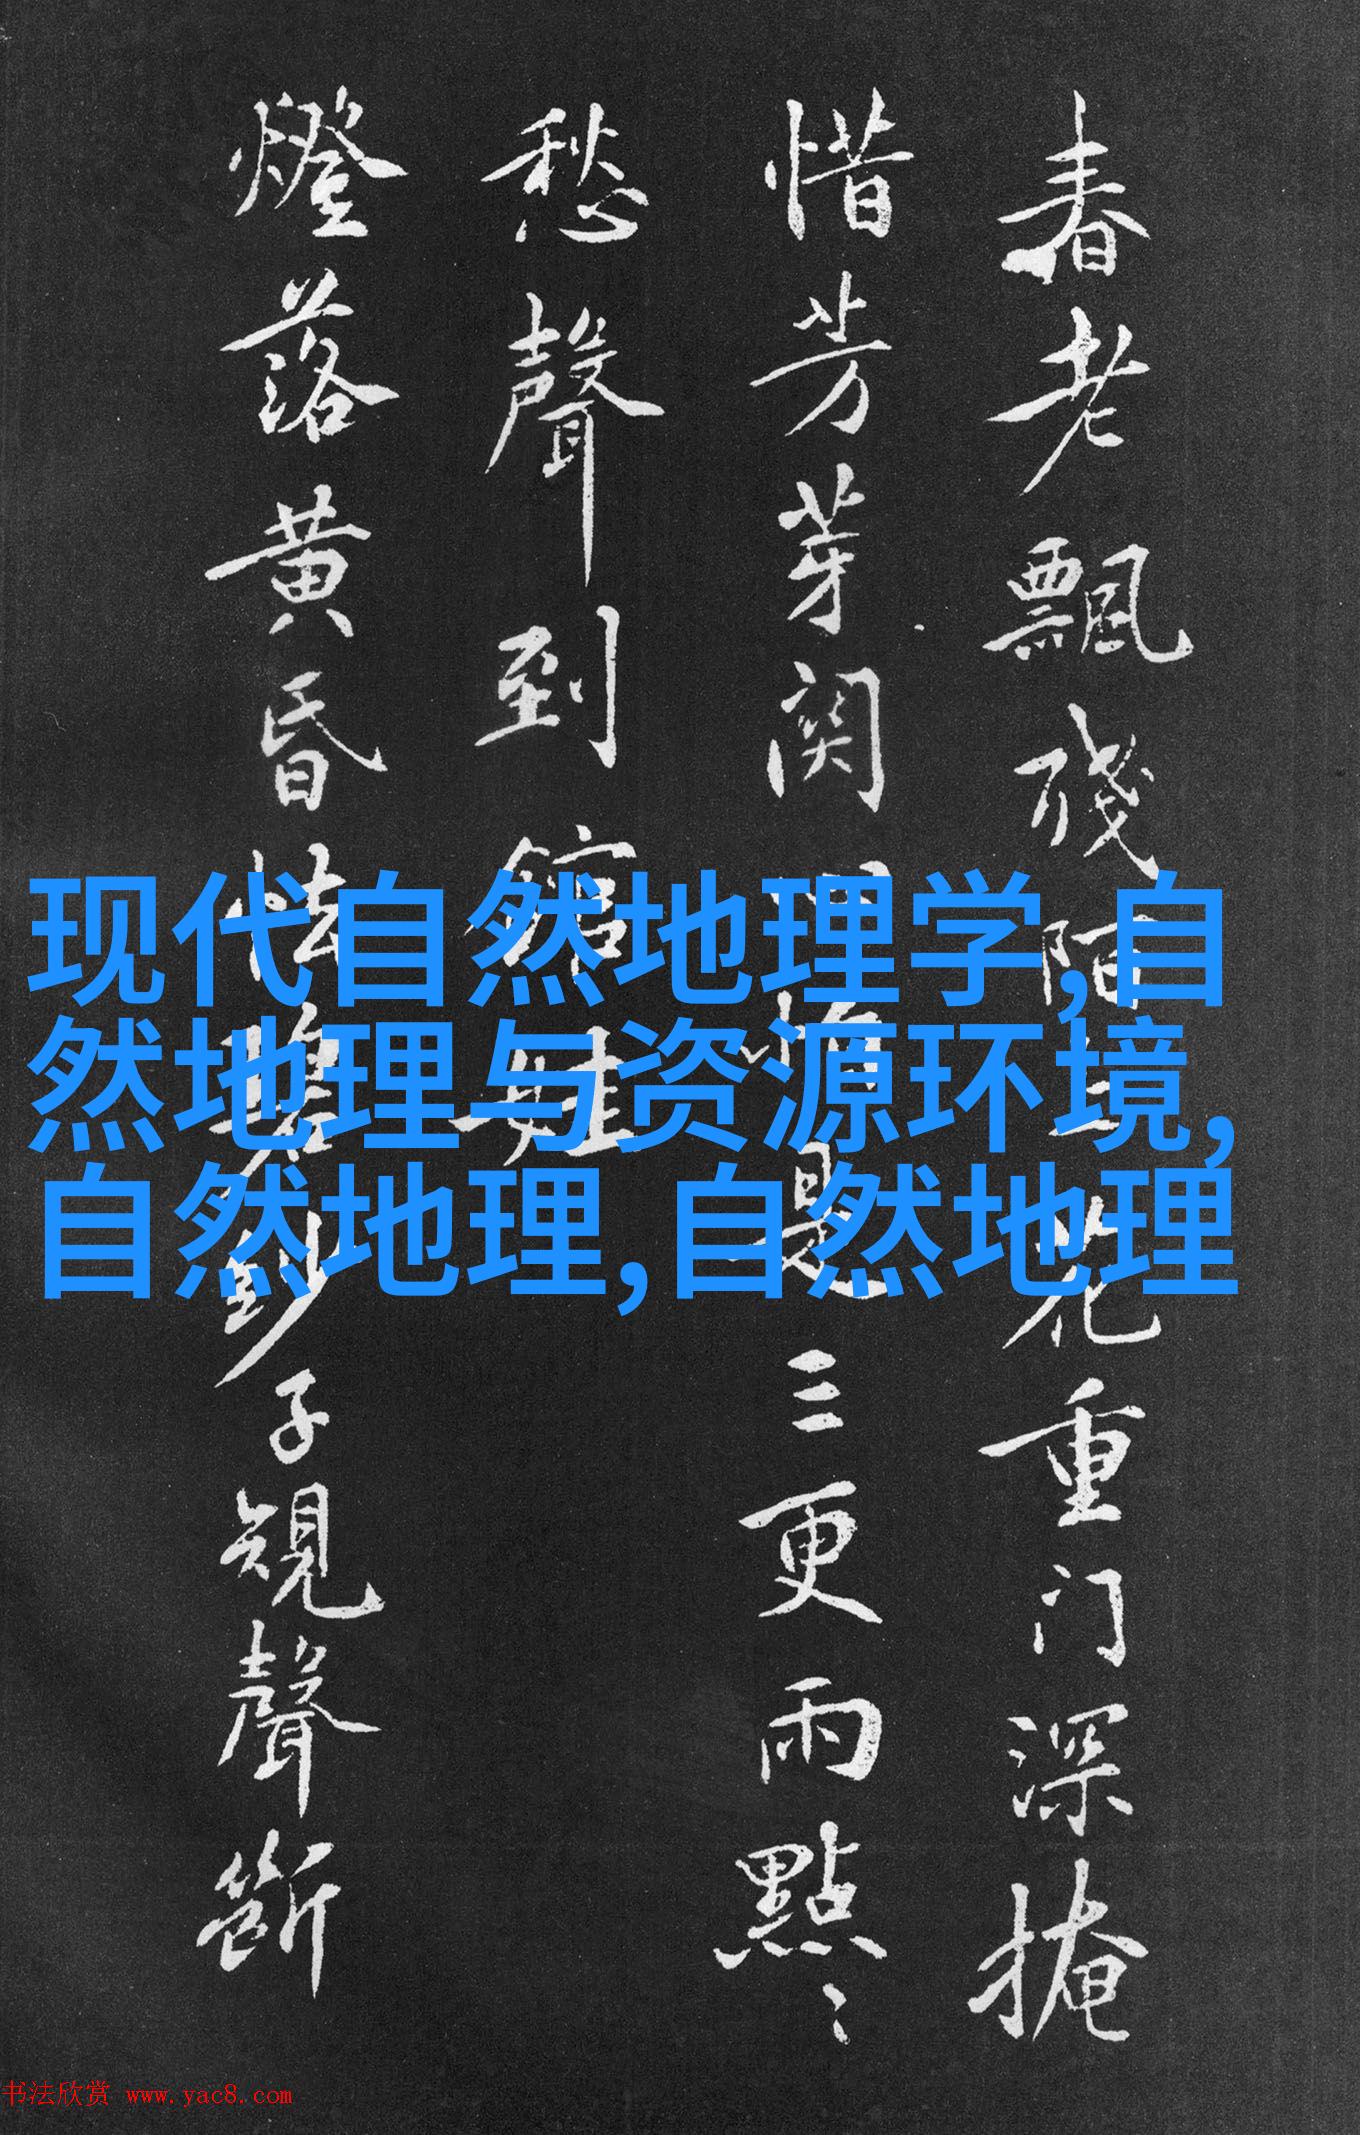 春老飄殘陌上花重门深掩
惜芳芽関心怕是三更雨點〻
愁聲到館娃
燈落黄昏怯碧紗子規聲斷
现代自然地理学,自
然地理与资源环境,
自然地理,自然地理
书法欣赏 www.yac8.com